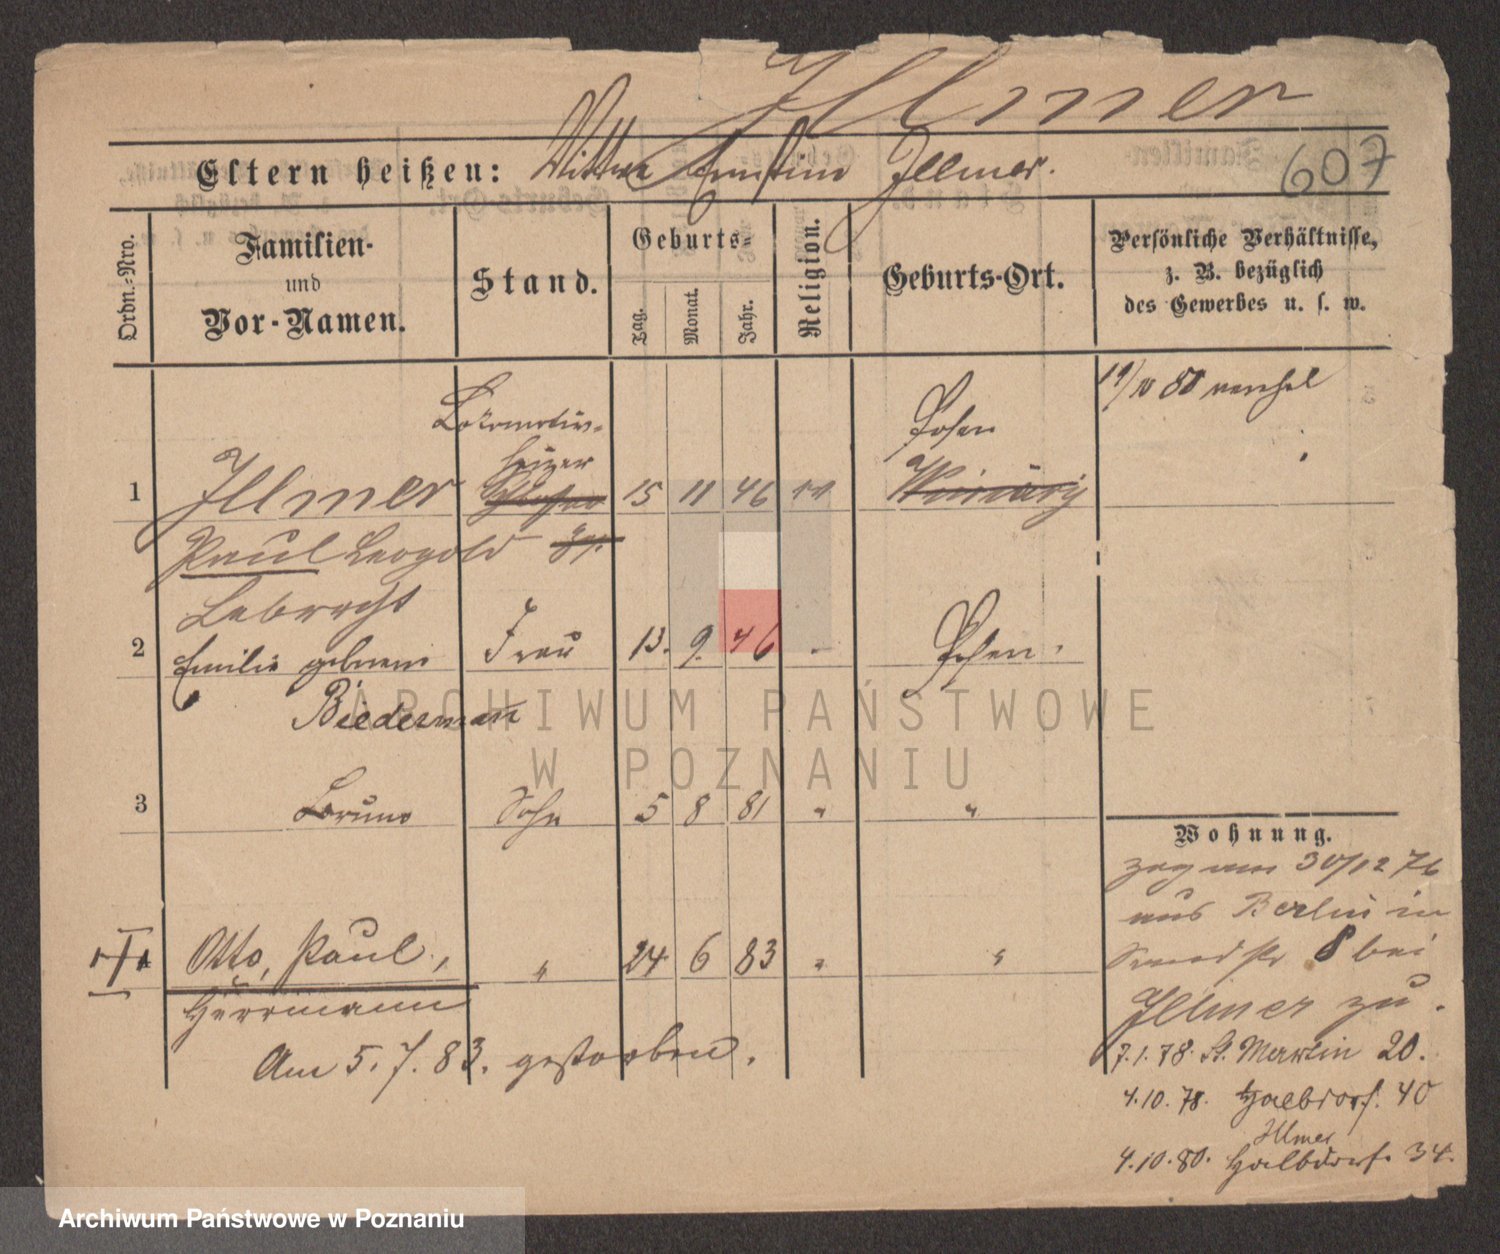 Illmer
607
Eltern heißen: Wittwe Ernstine Illmer.
Ordn.-Nro.
Familien-
und
Vor-Namen.
Stand.
Geburts-
Tag.
Monat.
Jahr.
Religion.
Geburts-Ort.
Persönliche Verhältnisse,
z. B. bezüglich
des Gewerbes u. s. w.
Lokomotiv-
heizer
Posen
1 Illmer 15 11 46
Paul Leopold
Lebrecht
2 Emilie geborene Frau 13. 9. 46 Posen.
Biedermann
3 Bruno Sohn 5 8 81 " "
Otto, Paul, " 24 6 83 " "
Herrmann
Am 5. 7. 83. gestorben.
Wohnung.
zog am 30/12 76
aus Berlin in
8 bei
Illmer zu.
7.1.78. St. Martin 20.
4.10.78. Halbdorf. 40
Illmer
4.10.80. Halbdorf. 34.
ARCHIWUM PAŃSTWOWE
W POZNANIU
Archiwum Państwowe w Poznaniu